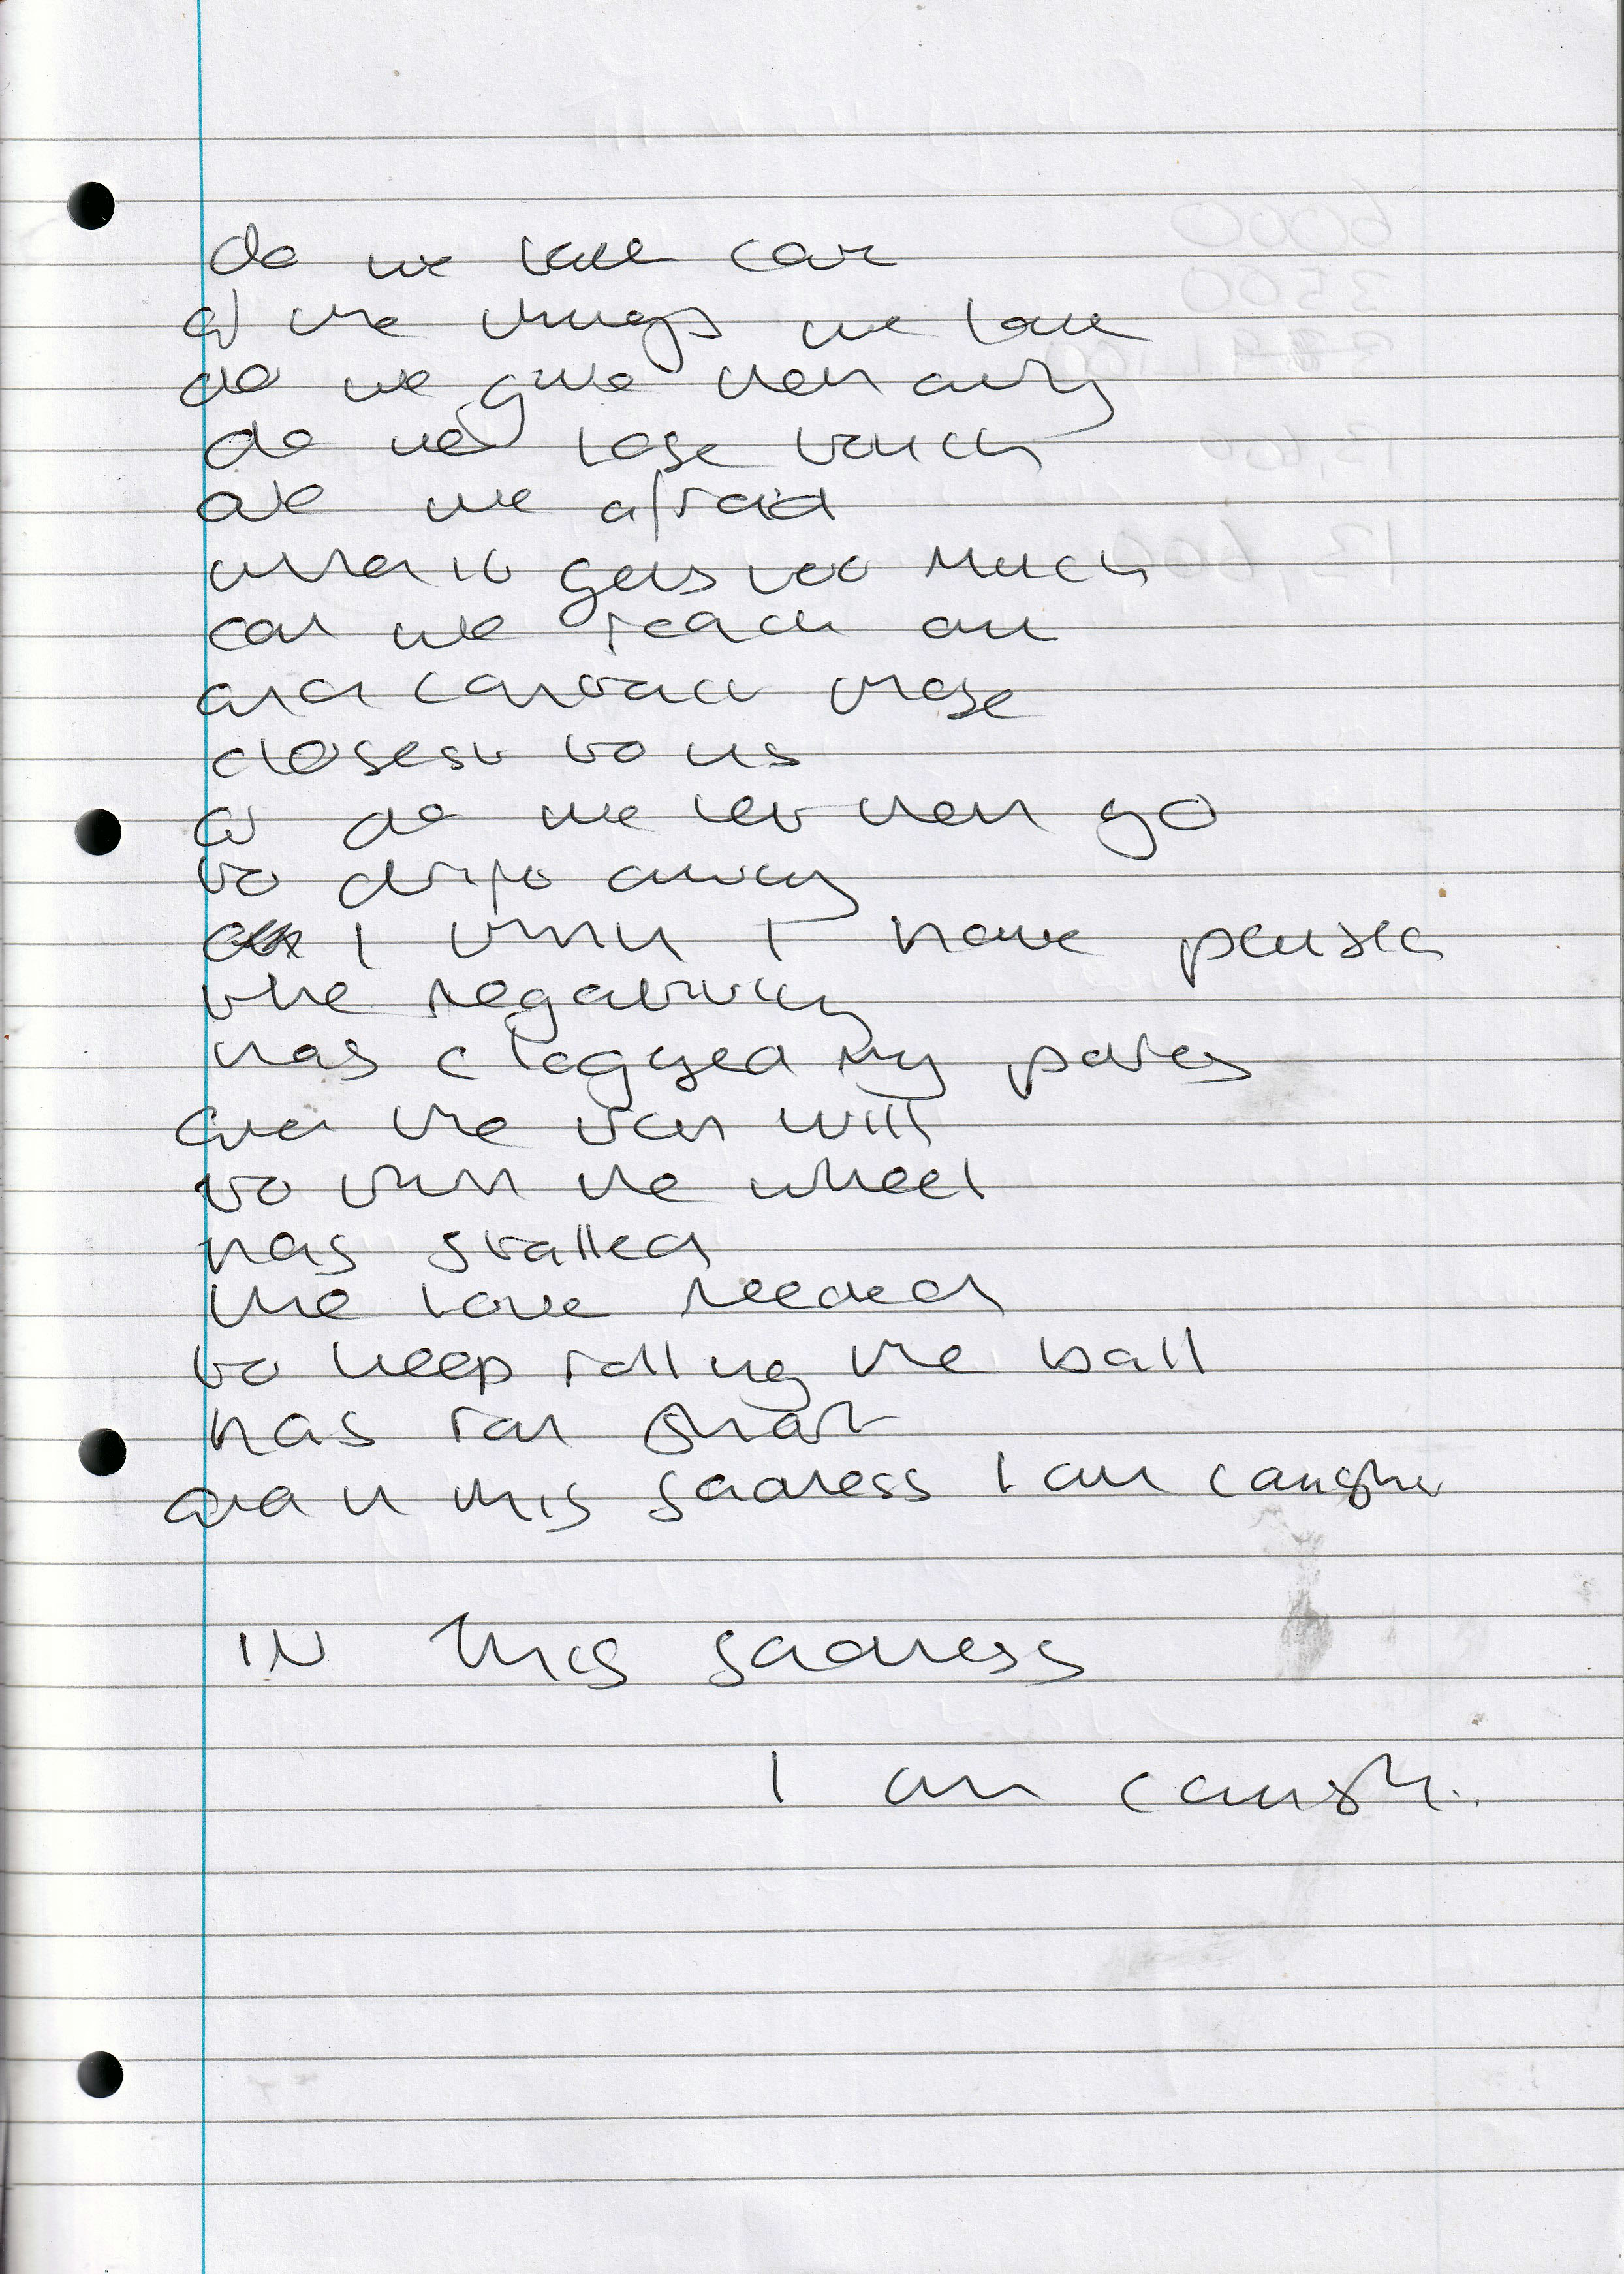 do we take care
of the things we love
do we give them away
do we lose touch
are we afraid
when it gets too much
can we reach out
and contact those
closest to us
or do we let them go
to drift away
I think I have paused
the negativity
has clogged my pores
and the van will
to turn the wheel
has stalled
the love needed
to keep rolling the ball
has ran short
and in this sadness I am caught
IN this sadness
I am caught.